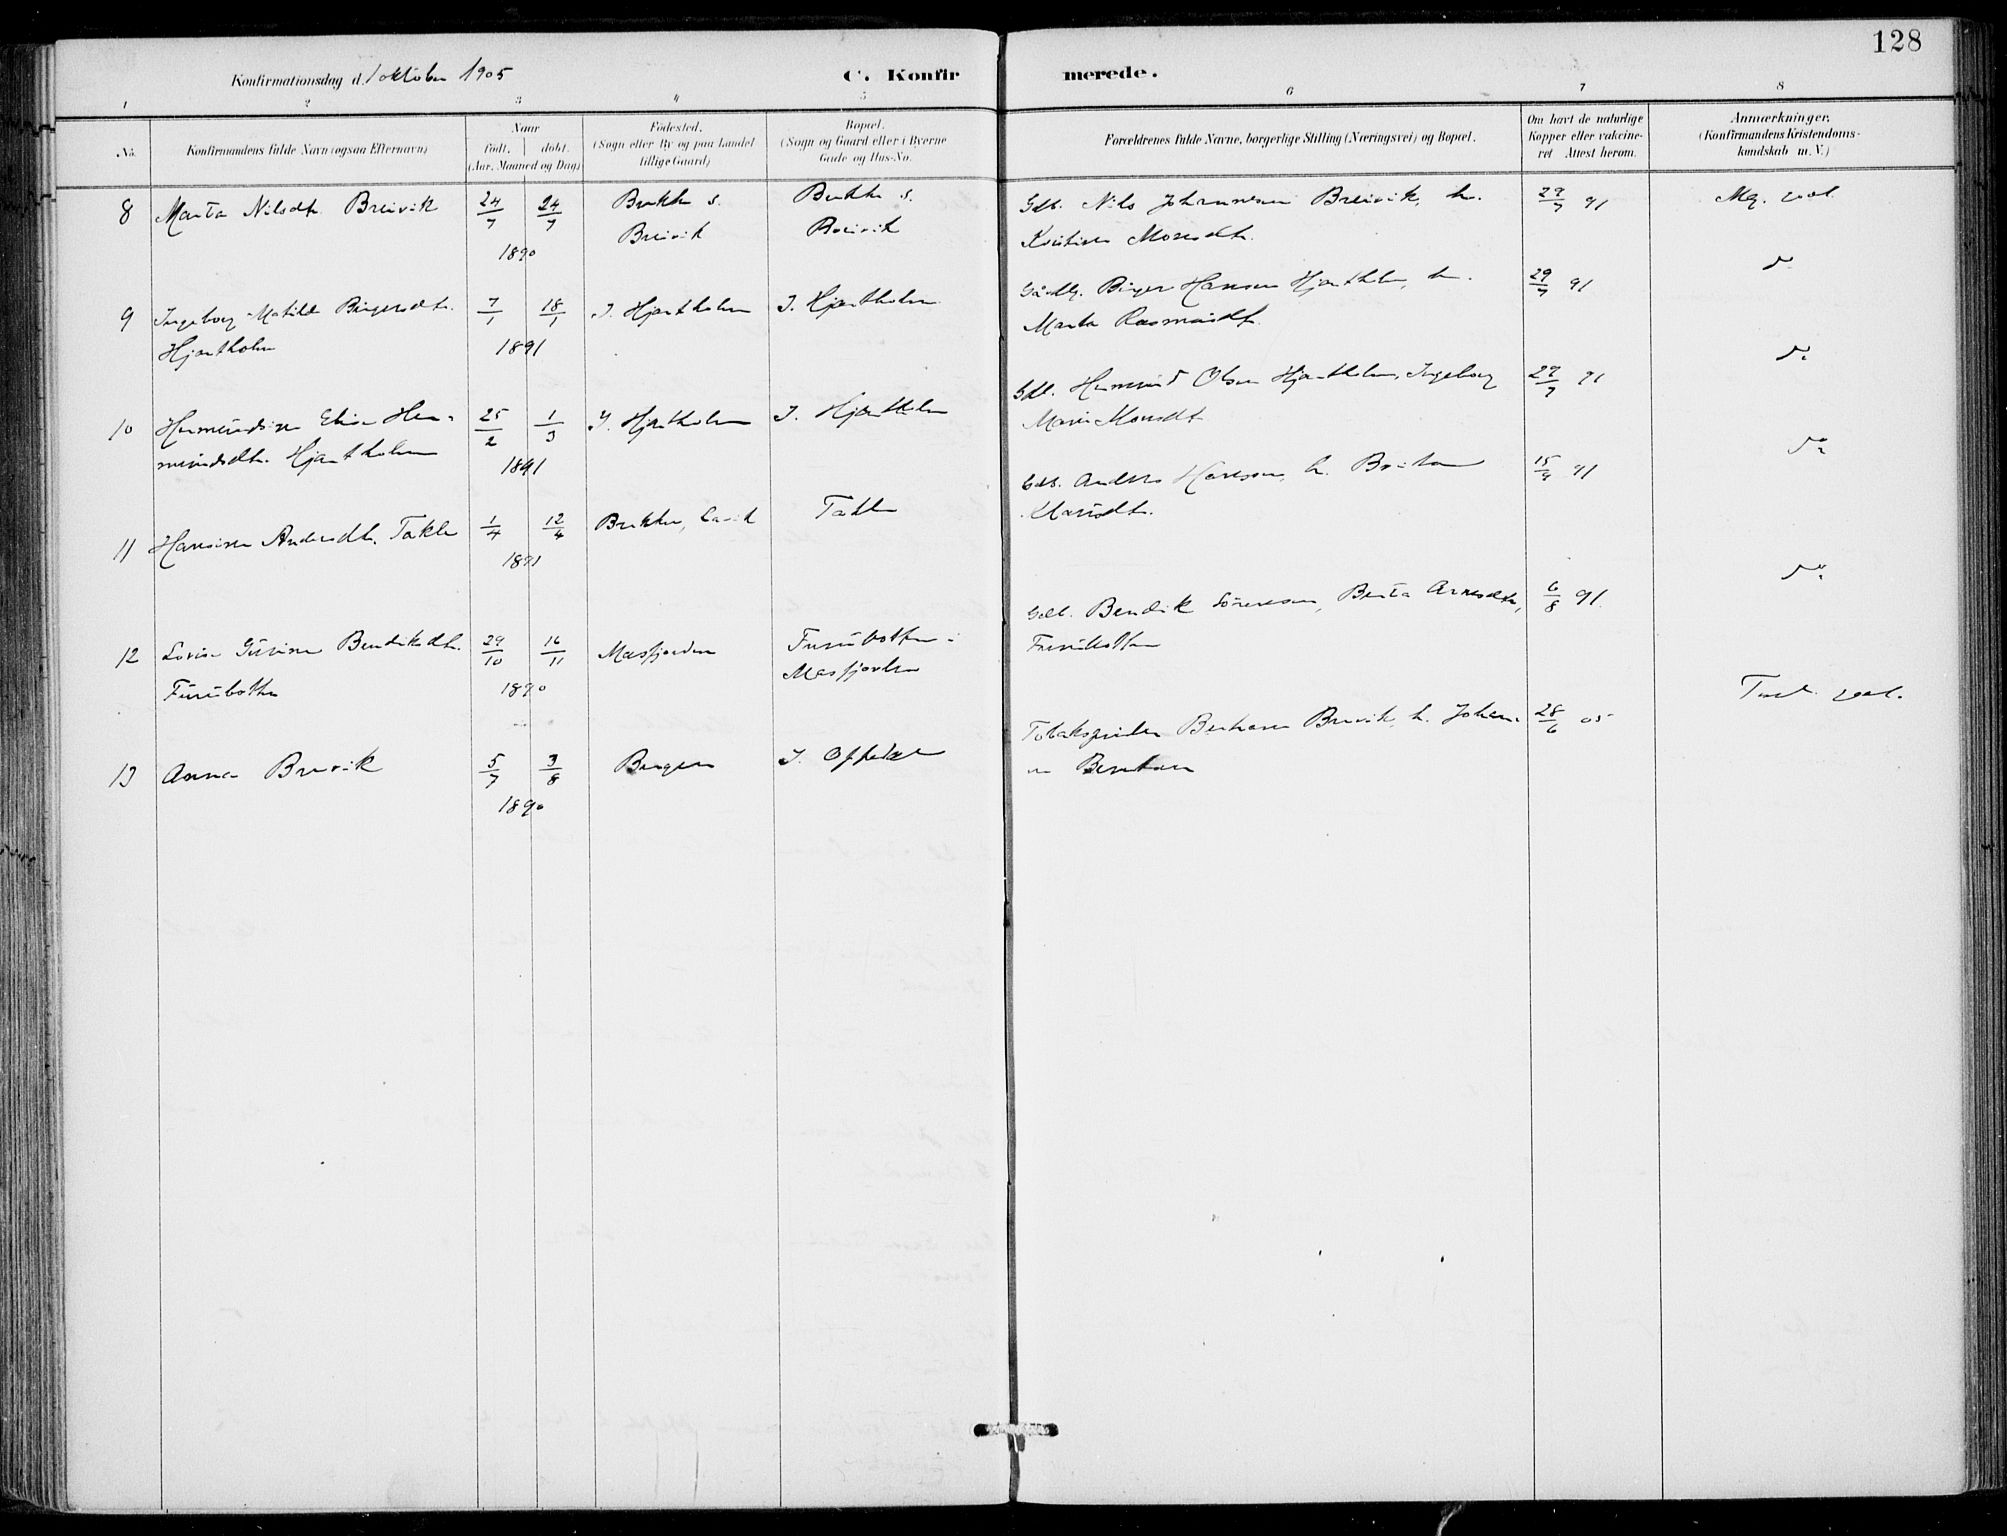 128
Konfirmationsdag d. 1 oktober 1905
C. Konfir merede.
1 2 3 4 5 6 7 8
No.
Konfirmandens fulde Navn (ogsaa Efternavn)
Naar
født. døbt.
(Aar, Maaned og Dag)
Fødested.
(Sogn eller By og paa Landet
tillige Gaard)
Bopæl.
(Sogn og Gaard eller i Byerne
Gade og Hus-No.
Forældrenes fulde Navne, borgerlige Stilling (Næringsvei) og Bopæl.
Om havt de naturlige
Kopper eller vakcine-
ret Attest herom.
Anmærkninger.
(Konfirmandens Kristendoms-
kundskab m. V.)
8 Marta Nilsdt. Breivik 24/7 24/7 Brekke s. Brekke s. Gdb. Nils Johannesen Breivik, h. 29/7 91 Mg. god.
1890 Breivik Breivik Kristine Monsdt.
9 Ingeborg Matilde Birgersdt. 7/1 18/1 I. Hjartholm I. Hjartholm Birger Hansen Hjartholm, h. 29/7 91 do
Hjartholm 1891 Marta Rasmusdt.
10 Hermundine Elise Her- 25/2 1/3 I. Hjartholm I. Hjartholm Gdb. Hermund Olsen Hjartholm, Ingeborg 29/7 91 do
mundsdt. Hjartholm 1891 Marie Monsdt.
11 Hansine Andersdt. Takle 1/4 12/4 Brekke, Lavik Takle Gdb. Anders Hansen, h. Brita 15/9 91 do
1891
12 Lovise Gurine Bendiksdt. 29/10 16/11 Masfjorden Furubotten i Gdb. Bendik Sørensen, Berta Arnesdt, 6/8 91. do
Furubotten 1890 Masfjorden Furubotten
13 Anna Brevik 5/7 3/8 Bergen I. Oppedal Tobakspinder Berhard Brevik, h. Johan- 28/6 05 god.
1890 ne Berntsen